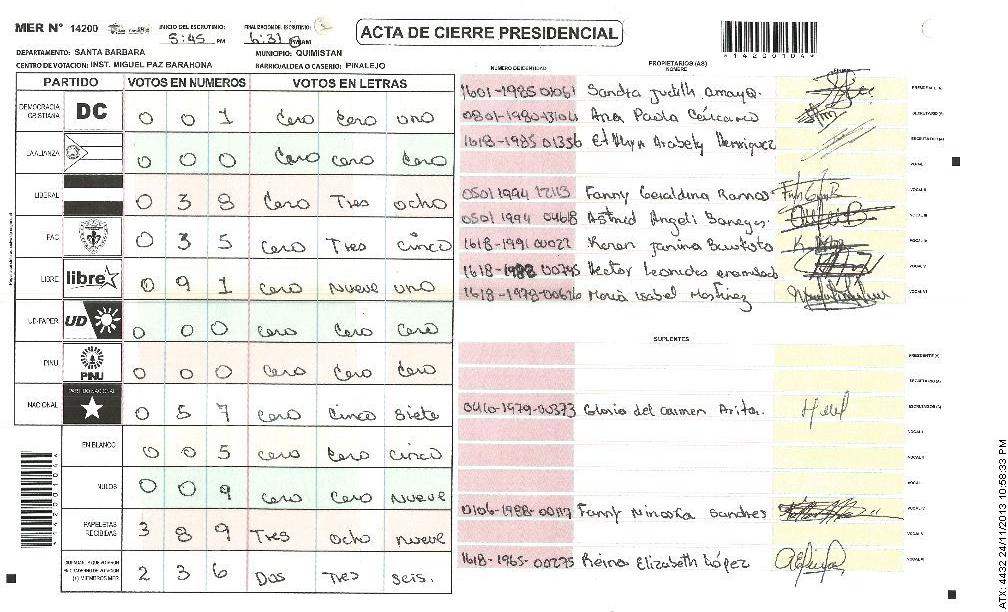 MER N° 14200
INICIO DEL ESCRUTINIO: 5:45 PM
FINALIZACION DEL ESCRUTINIO: 6:31 PM
ACTA DE CIERRE PRESIDENCIAL
*14200104*
DEPARTAMENTO: SANTA BARBARA
MUNICIPIO: QUIMISTAN
CENTRO DE VOTACION: INST. MIGUEL PAZ BARAHONA
BARRIO/ALDEA O CASERIO: PINALEJO
PARTIDO VOTOS EN NUMEROS VOTOS EN LETRAS
DEMOCRACIA CRISTIANA DC 0 0 1 Cero Cero uno
LA ALIANZA 0 0 0 Cero cero Cero
LIBERAL 0 3 8 Cero Tres ocho
PAC 0 3 5 Cero Tres cinco
LIBRE libre 0 9 1 Cero nueve uno
UD-FAPER UD 0 0 0 Cero Cero Cero
PINU PINU 0 0 0 Cero Cero Cero
NACIONAL PARTIDO NACIONAL 0 5 7 Cero cinco siete
EN BLANCO 0 0 5 Cero Cero cinco
NULOS 0 0 9 Cero Cero nueve
PAPELETAS RECIBIDAS 3 8 9 Tres ocho nueve
(+) MIEMBROS MER 2 3 6 Dos Tres seis.
NUMERO DE IDENTIDAD
PROPIETARIOS (AS)
NOMBRE
FIRMA
1601-1985 01061 Sandra Judith amaya. PRESIDENTE (A)
Ana Paola SECRETARIO (A)
1618-1985 01356 Arabely Henriquez ESCRUTADOR (A)
VOCAL I
0501 1994 Fanny Geraldina Ramos VOCAL II
0501 1994 0468 Astrid Angeli Banegas. VOCAL III
1618-1991 00022 Keren Janina Bautista VOCAL IV
Hector Leonides VOCAL V
1618-1978-00626 Maria Isabel Martinez VOCAL VI
SUPLENTES
PRESIDENTE (A)
SECRETARIO (A)
0410-1979-00373 Gloria del carmen Arita. ESCRUTADOR (A)
VOCAL I
VOCAL II
VOCAL III
0106-1988-00117 Fanny VOCAL IV
VOCAL V
1618-1965-00275 Reina Elizabeth López VOCAL VI
ATX: 4432 24/11/2013 10:58:33 PM